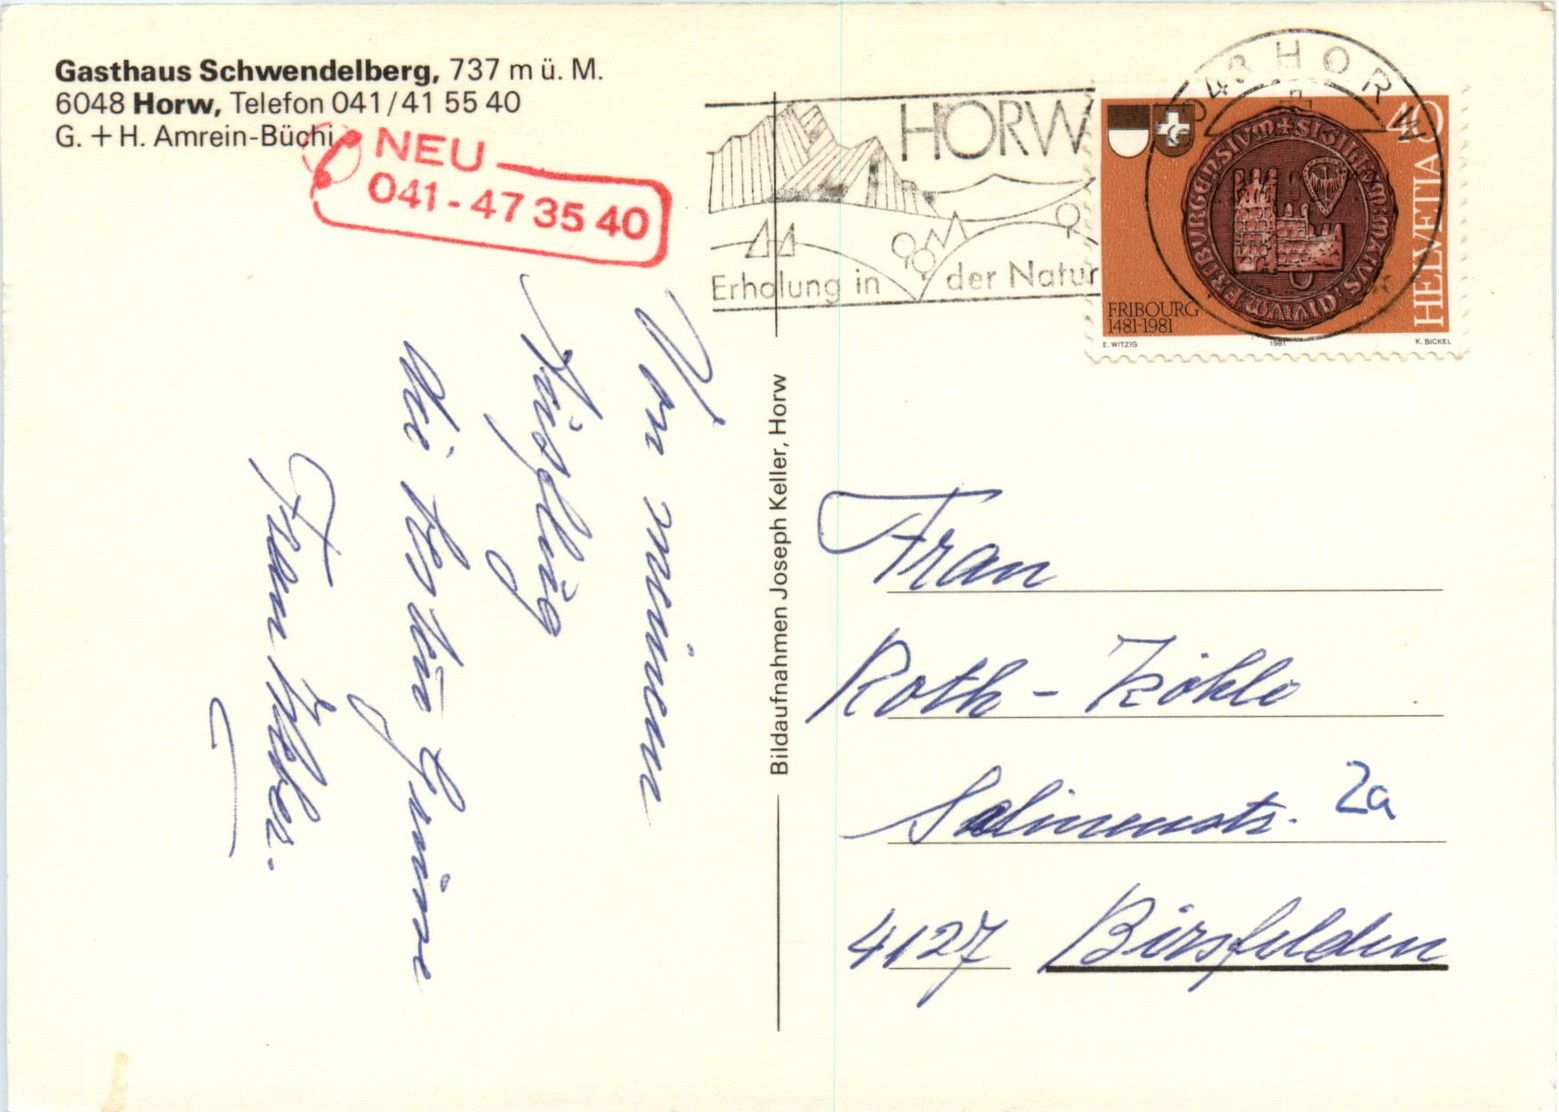 Gasthaus Schwendelberg, 737 m ü. M.
6048 Horw, Telefon 041/41 55 40
G. + H. Amrein-Büchi
NEU
041-47 35 40
HORW
Erholung in der Natur
6048 HORW
40
HELVETIA
FRIBOURG
1481-1981
E. WITZIG
1981
K. BICKEL
Von meinem
Ausflug
die besten Grüsse
Frau
Bildaufnahmen Joseph Keller, Horw
Frau
Roth-
Salinenstr. 2a
4127 Birsfelden